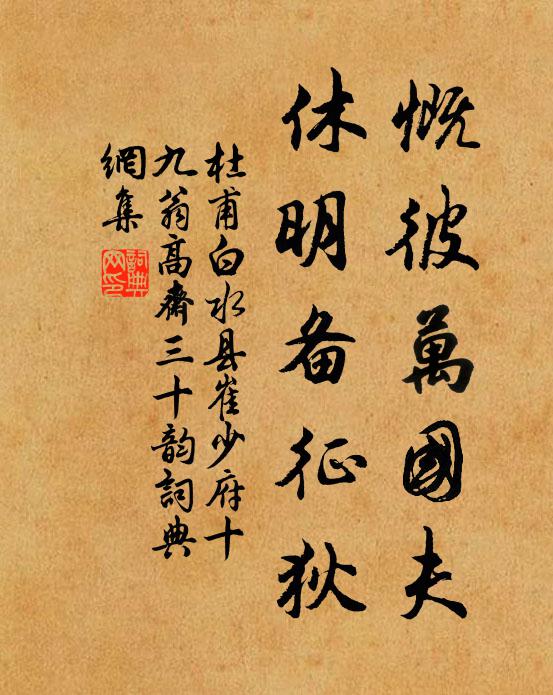 慨彼萬國夫
休明备征狄
杜甫白水县崔少府十
九翁高斋三十韵詞典
網集
詞典
网印